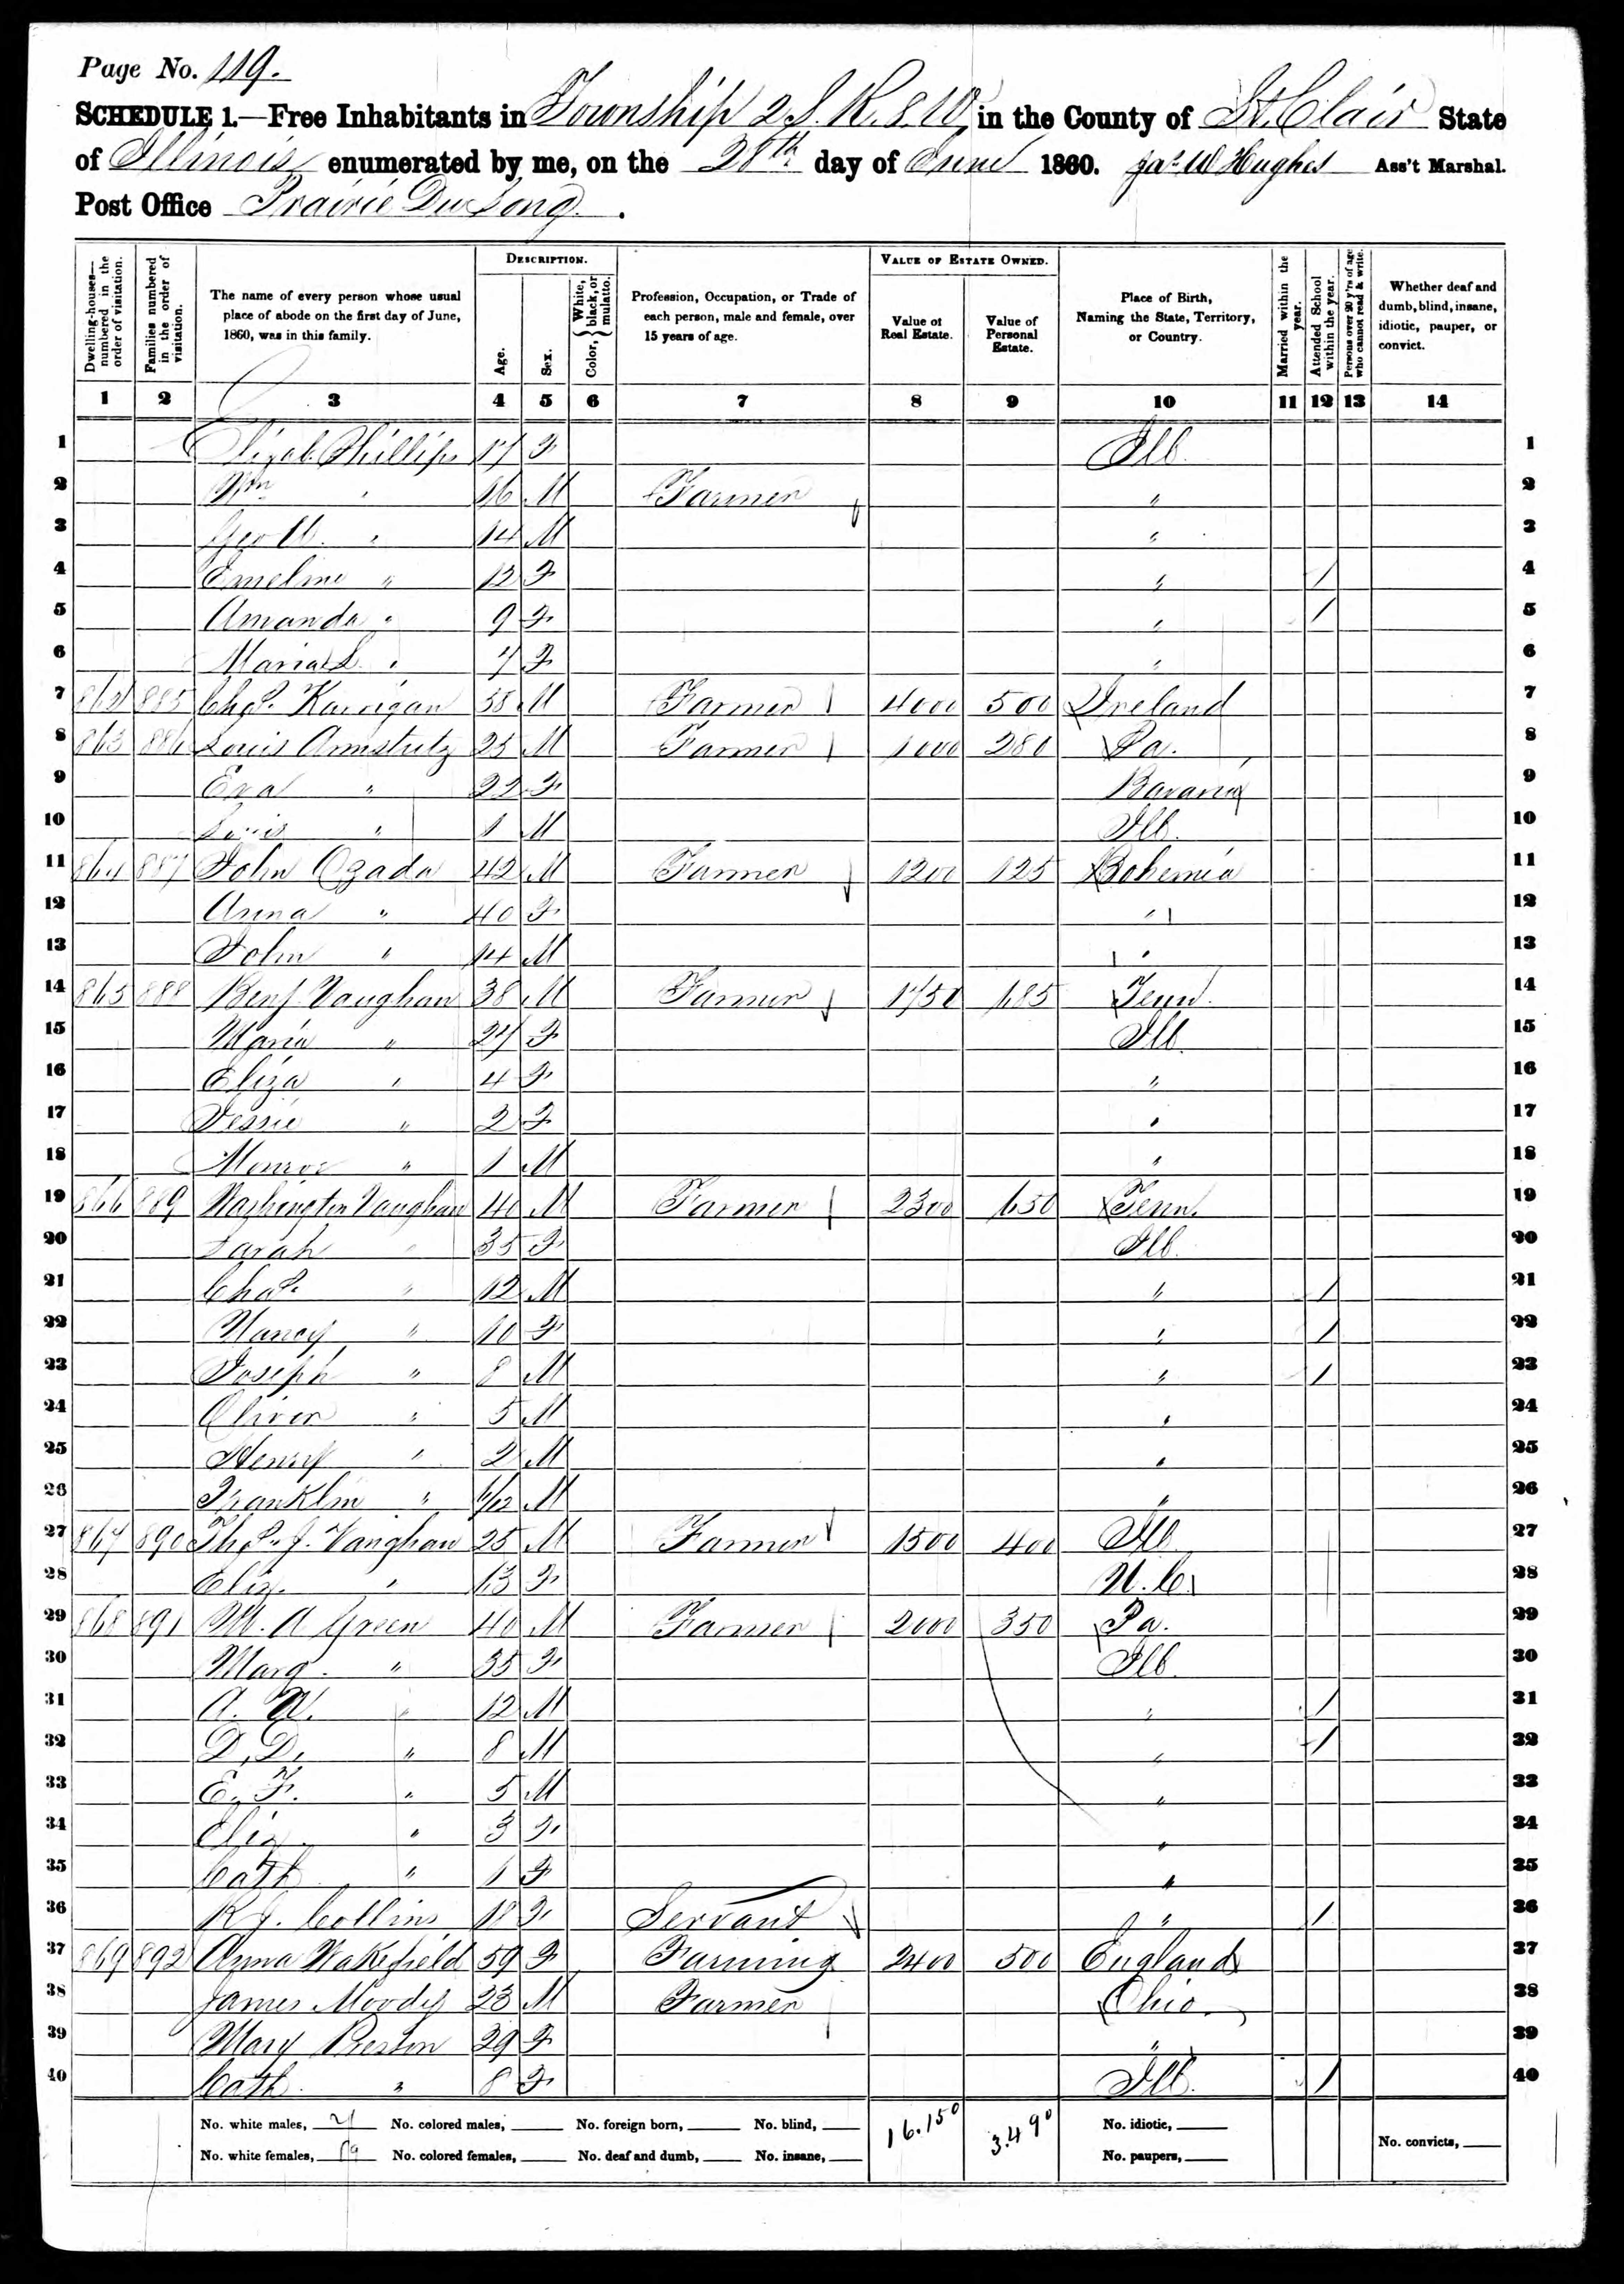 Page No. 119.
SCHEDULE 1.—Free Inhabitants in Township 2 S. R. 8 W in the County of St. Clair State
of Illinois enumerated by me, on the 28th day of June 1860. Jas W Hughes Ass't Marshal.
Post Office Prairie Du Long.
Dwelling-houses—numbered in the order of visitation.
Families numbered in the order of visitation.
The name of every person whose usual place of abode on the first day of June, 1860, was in this family.
DESCRIPTION.
Age.
Sex.
Color, { White, black, or mulatto.
Profession, Occupation, or Trade of each person, male and female, over 15 years of age.
VALUE OF ESTATE OWNED.
Value of Real Estate.
Value of Personal Estate.
Place of Birth, Naming the State, Territory, or Country.
Married within the year.
Attended School within the year.
Persons over 20 y'rs of age who cannot read & write.
Whether deaf and dumb, blind, insane, idiotic, pauper, or convict.
1 2 3 4 5 6 7 8 9 10 11 12 13 14
1 Elizab. Phillips 17 F Ill. 1
2 Wm " 16 M Farmer " 2
3 Geo W. " 14 M " 3
4 Emeline " 12 F " / 4
5 Amanda " 9 F " / 5
6 Maria L. " 7 F " 6
7 862 885 Chas. Karrigan 38 M Farmer 4000 500 Ireland 7
8 863 886 Louis Armstutz 25 M Farmer 1000 280 Pa. 8
9 Eva " 22 F Bavaria 9
10 Louis " 1 M Ill. 10
11 864 887 John Ozada 42 M Farmer 1200 125 Bohemia 11
12 Anna " 40 F " 12
13 John " 14 M " 13
14 865 888 Benj. Vaughan 38 M Farmer 1750 685 Tenn. 14
15 Maria " 27 F Ill. 15
16 Eliza " 4 F " 16
17 Jessie " 2 F " 17
18 Monroe " 1 M " 18
19 866 889 Washington Vaughan 40 M Farmer 2300 650 Tenn. 19
20 Sarah " 35 F Ill. 20
21 Chas. " 12 M " / 21
22 Nancy " 10 F " / 22
23 Joseph " 8 M " / 23
24 Oliver " 5 M " 24
25 Henry " 2 M " 25
26 Franklin " /12 M " 26
27 867 890 Thos. J. Vaughan 25 M Farmer 1500 400 Ill 27
28 Eliz. " 13 F N. C. 28
29 868 891 M. A Green 40 M Farmer 2000 350 Pa. 29
30 Marg. " 35 F Ill. 30
31 A. W. " 12 M " / 31
32 D. D. " 8 M " / 32
33 E. F. " 5 M " 33
34 Eliz. " 3 F " 34
35 Cath. " 1 F " 35
36 R J. Collins 18 F Servant " / 36
37 869 892 Anna Wakefield 59 F Farming 2400 500 England 37
38 James Moody 23 M Farmer Ohio 38
39 Mary Beston 29 F " 39
40 Cath. " 8 F Ill. / 40
No. white males, 21 No. colored males, No. foreign born, No. blind, 16.150 3.490 No. idiotic,
No. white females, 19 No. colored females, No. deaf and dumb, No. insane, No. paupers, No. convicts,